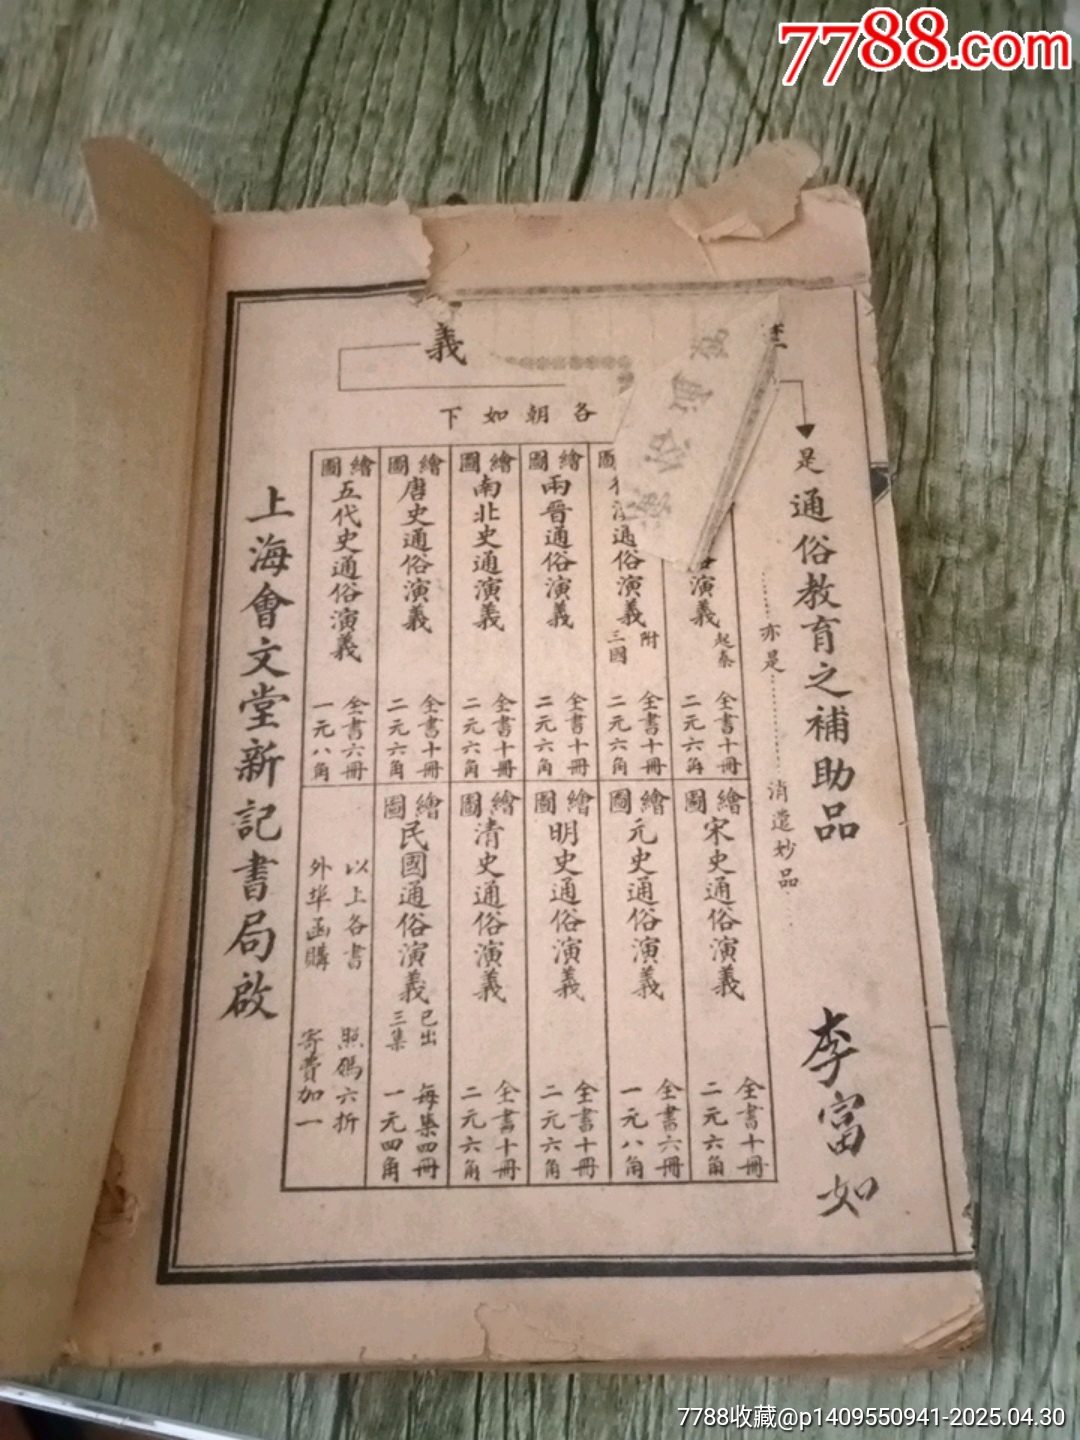 7788.com
義
各朝如下
是通俗教育之補助品
亦是
消遣妙品
李富如
演義
起秦
全書十冊
二元六角
通俗演義
附
三國
全書十冊
二元六角
繪圖
兩晉通俗演義
全書十冊
二元六角
繪圖
南北史通演義
全書十冊
二元六角
繪圖
唐史通俗演義
全書十冊
二元六角
繪圖
五代史通俗演義
全書六冊
一元八角
繪圖
宋史通俗演義
全書十冊
二元六角
繪圖
元史通俗演義
全書六冊
一元八角
繪圖
明史通俗演義
全書十冊
二元六角
繪圖
清史通俗演義
全書十冊
二元六角
繪圖
民國通俗演義
已出
三集
每集四冊
一元四角
以上各書
照碼六折
外埠函購
寄費加一
上海會文堂新記書局啟
7788收藏@p1409550941-2025.04.30